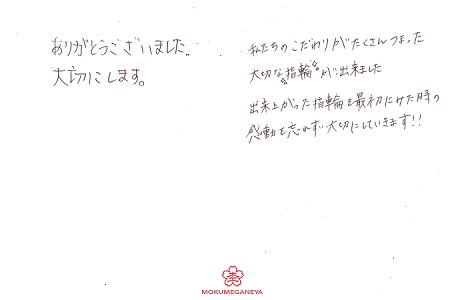 ありがとうございました。
大切にします。
私たちのこだわりがたくさんつまった
大切な"指輪"が出来ました
出来上がった指輪を最初にみた時の
感動を忘れず大切にしていきます!!
MOKUMEGANEYA